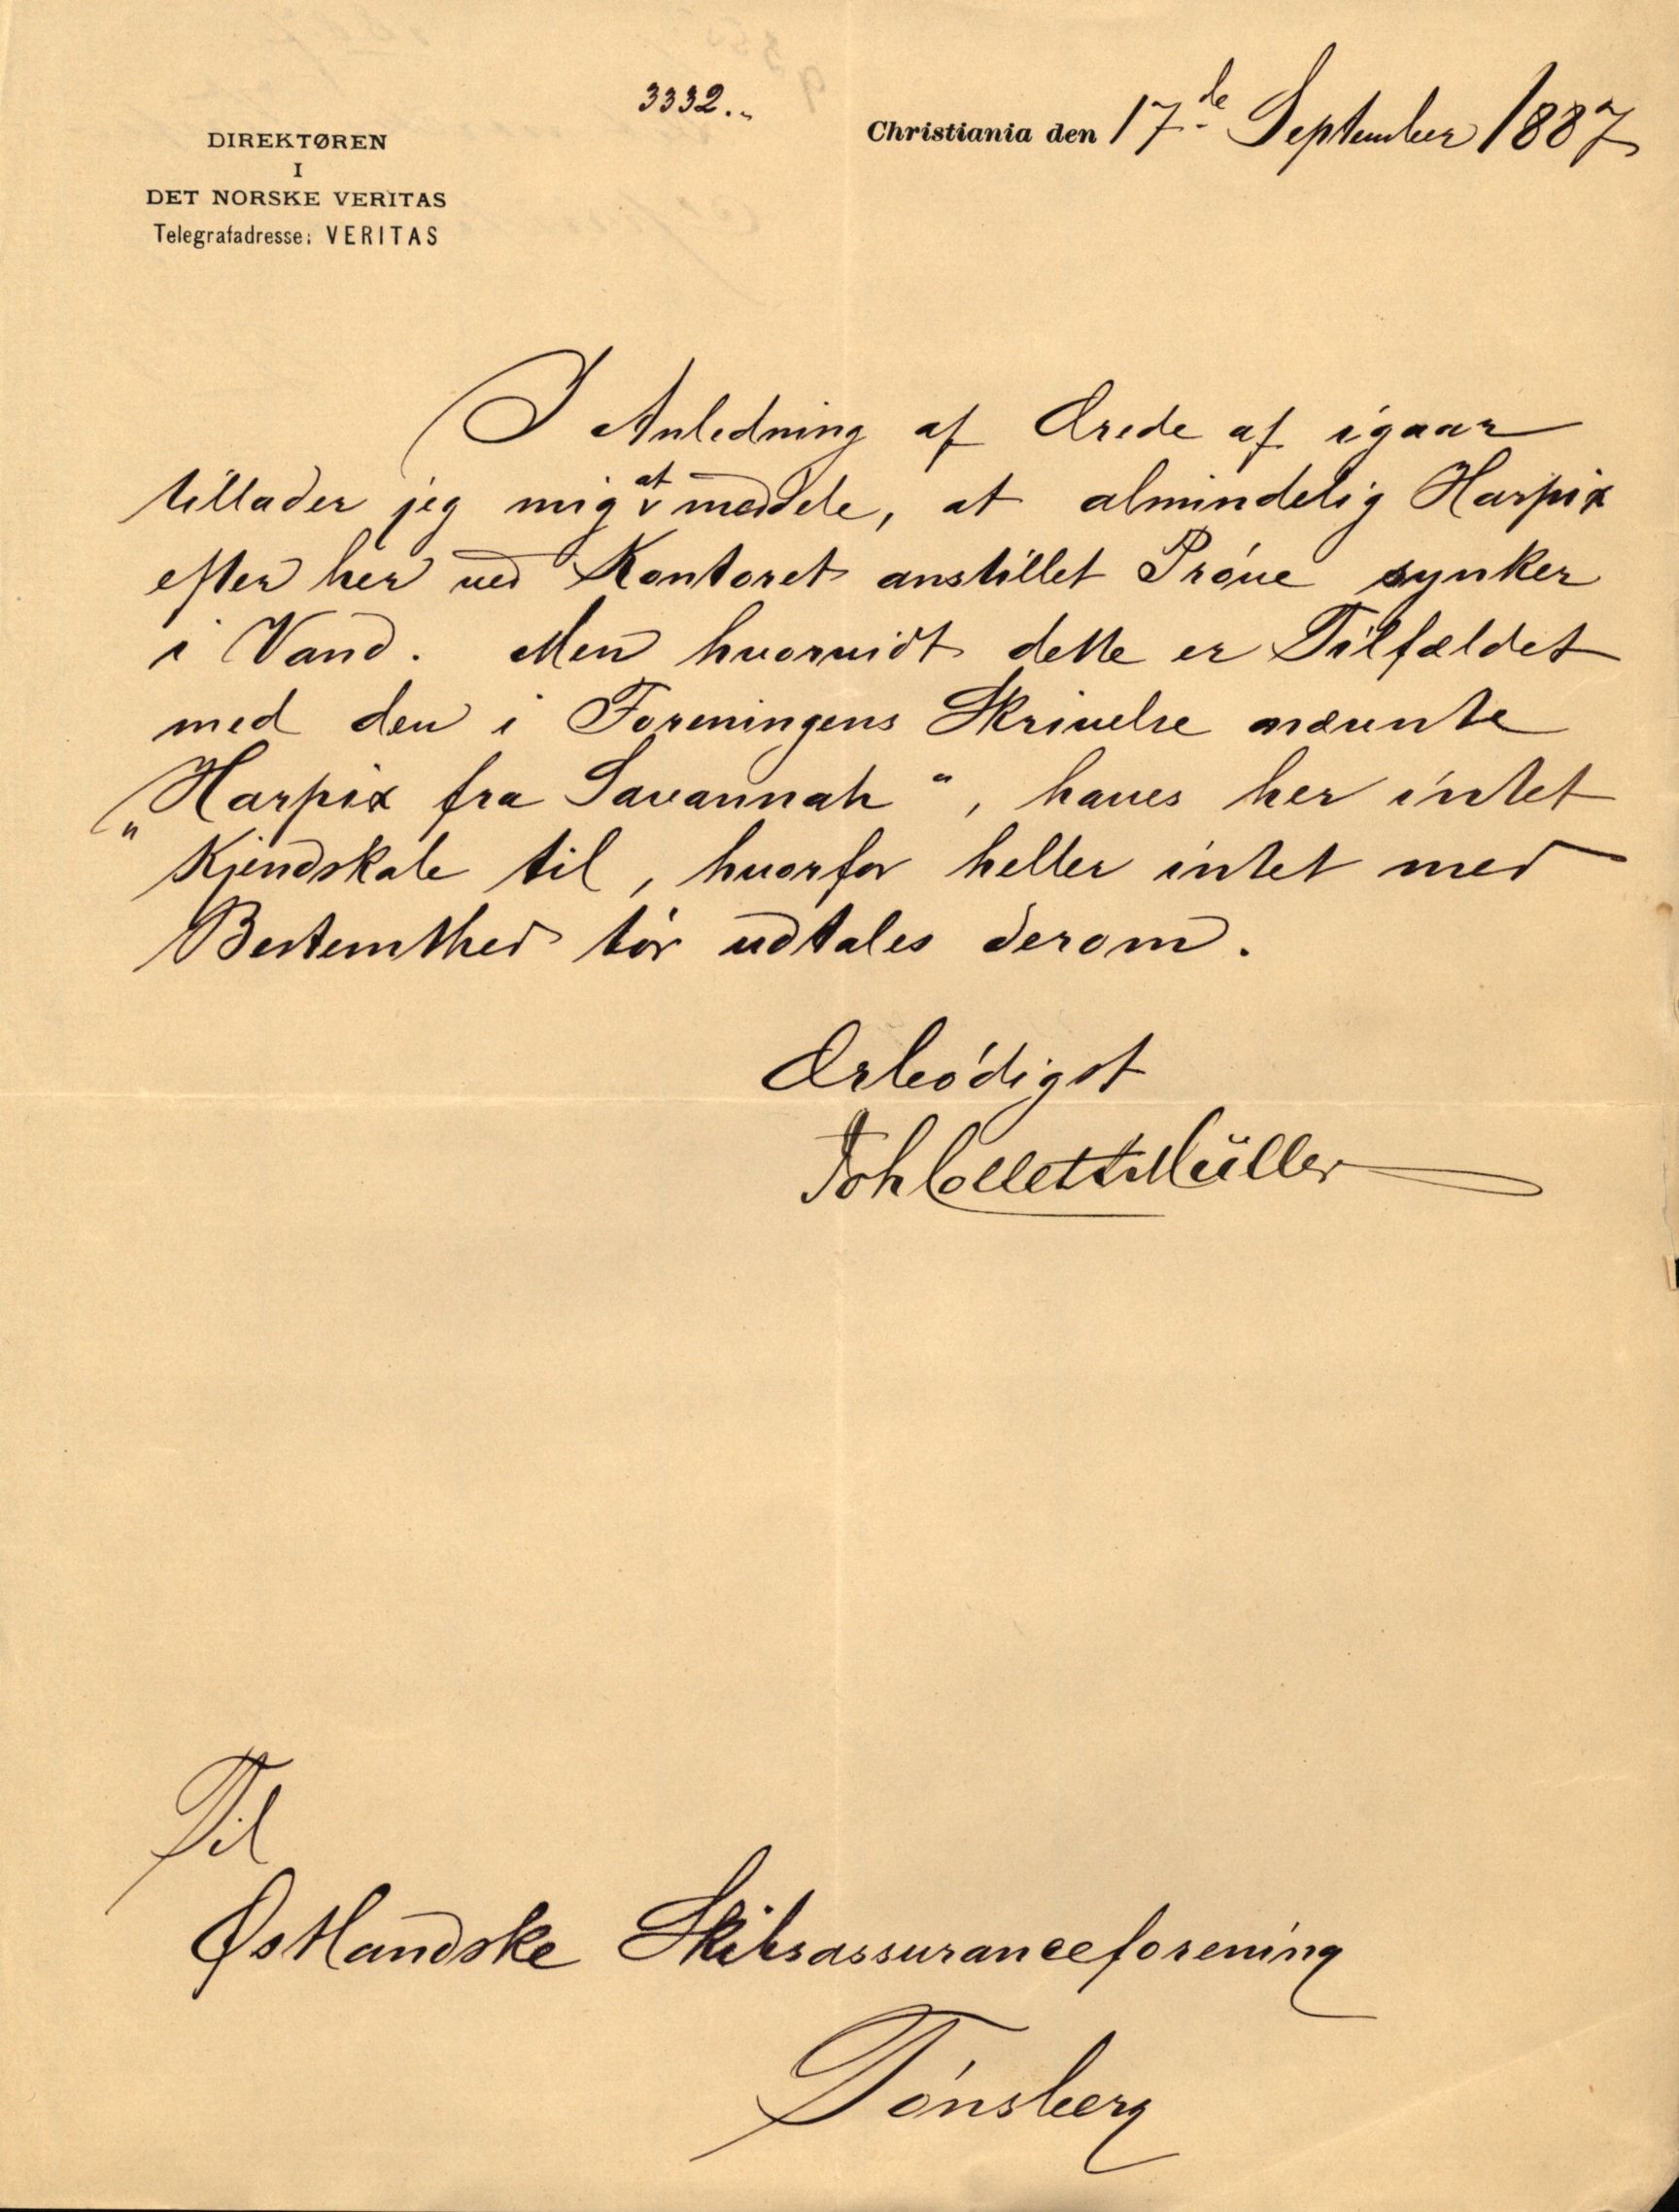 3332.
Christiania den 17de September 1887
DIREKTØREN
I
DET NORSKE VERITAS
Telegrafadresse: VERITAS
I Anledning af Ærede af igaar
tillader jeg mig at meddele, at almindelig Harpix
efter her ved Kontoret anstillet Próve synker
i Vand. Men hvorvidt dette er Tilfældet
med den i Foreningens Skrivelse nævnte
"Harpix fra Savannah", haves her intet
Kjendskab til, hvorfor heller intet med
Bestemthed tór udtales derom.
Ærbódigst
Joh Collett Müller
Til
Østlandske Skibsassuranceforening
Tónsberg